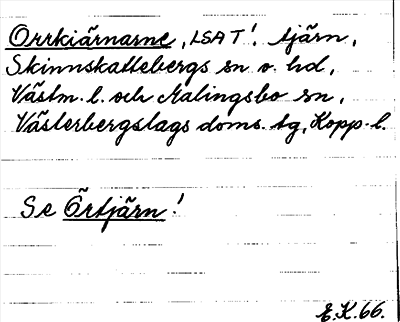 Orrkiärnarne, LSAT! tjärn,
Skinnskattebergs sn o. hd,
Västm. l. och Malingsbo sn,
Västerbergslags doms. tg, Kopp. l.
Se Örtjärn!
E.K.66.